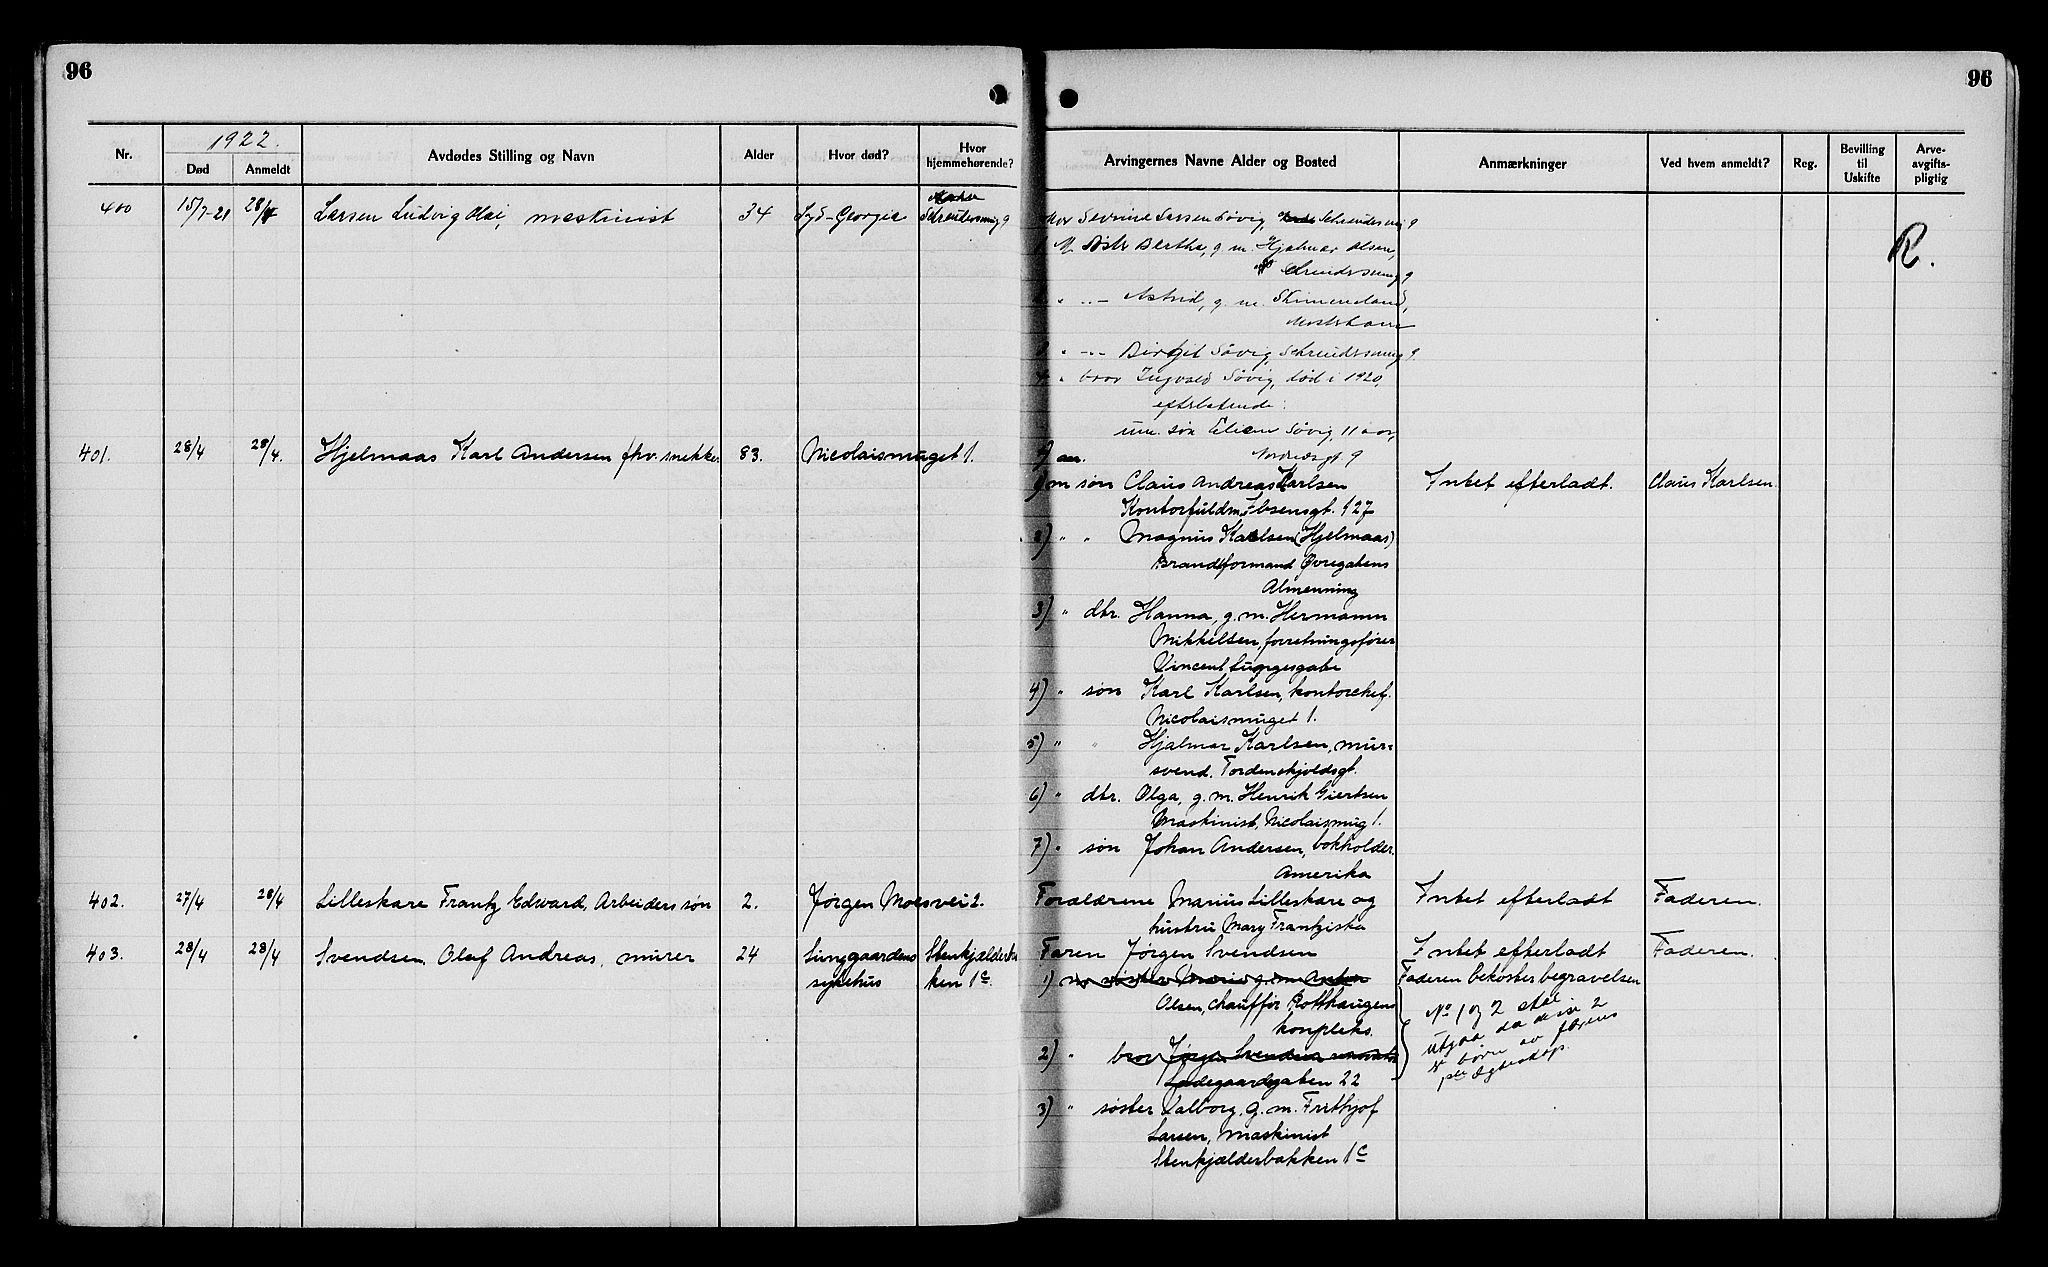 96
1922.
Nr.
Død
Anmeldt
Avdødes Stilling og Navn
Alder
Hvor død?
Hvor hjemmehørende?
400 15/7-21 28/4 Larsen Ludvig Olai, maskinist 34 Syd-Georgia Schreudersmug 9
401. 28/4 28/4. Hjelmaas Karl Andersen fhv. snekker 83. Nicolaismuget 1.
402. 27/4 28/4 Lilleskare Frantz Edward, Arbeiders søn 2. Jørgen Moesvei 2.
403. 28/4 28/4 Svendsen Olaf Andreas, murer 24 Lungaardens Stenkjælderbak
sykehus ken 1c.
96
Arvingernes Navne Alder og Bosted
Anmærkninger
Ved hvem anmeldt?
Reg.
Bevilling til Uskifte
Arveavgiftspligtig
Mor Severine Larsen Søvig, Schreudersmug 9
1 M. Søster Bertha, g. m. Hjalmar Olsen,
Schreudersmug 9
R.
" " - Astrid, g. m.
Mosterhavn
3 " - - Birgit Søvig, Schreudersmug 9
4 " bror Ingvald Søvig, død i 1920,
efterlatende:
um. søn Søvig, 11 aar,
9
1) m søn Claus Andreas Karlsen Intet efterladt. Claus Karlsen.
Kontorfuldm. Ibsensgt. 127
2) " " Magnus Karlsen (Hjelmaas)
Brandformand Øvregatens
Almenning
3) " dtr. Hanna, g. m. Hermann
Mikkelsen, forretningsfører
Vincent Lungesgate
4) " søn Karl Karlsen, kontorchef.
Nicolaismuget 1.
5) " " Hjalmar Karlsen, mur-
svend. Tordenskjoldsgt.
6) " dtr. Olga, g. m. Henrik Giertsen
Maskinist, Nicolaismug 1.
7) " søn Johan Andersen, bokholder.
Amerika
Forældrene Marius Lilleskare og Intet efterladt Faderen.
hustru Mary Frantziska
Faren Jørgen Svendsen Intet efterladt Faderen.
1) m søster Marie g. m. Anton Faderen bekoster begravelsen
Olsen, chauffør Rothaugens
kompleks.
No 1 og 2 skal
utgaa da disse 2
er børn av farens
ægteskap.
2) " bror Jørgen Svendsen
Ladegaardsgaten 22
3) " søster Valborg, g. m. Frithjof
Larsen, maskinist
Stenkjælderbakken 1c